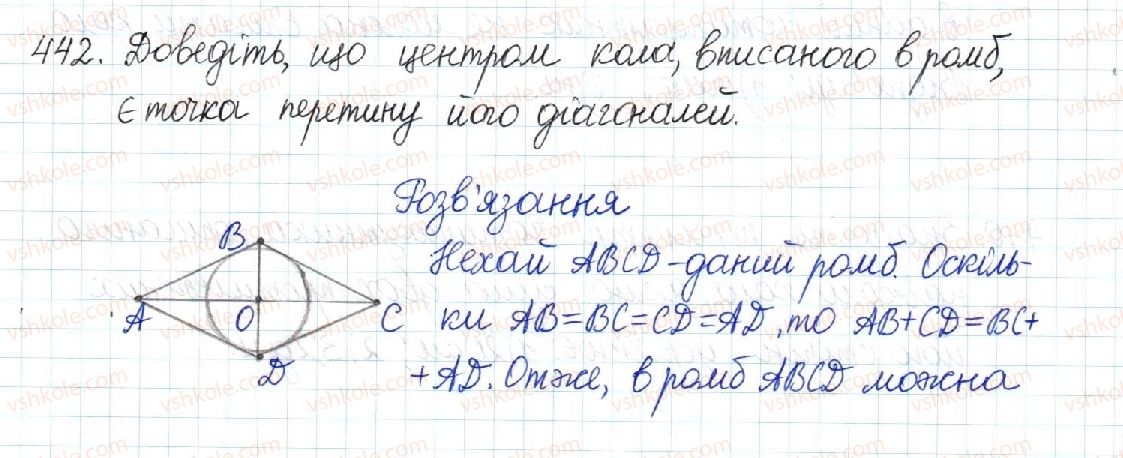 442. Доведіть, що центром кола, вписаного в ромб,
є точка перетину його діагоналей.
Розв'язання
Нехай ABCD - даний ромб. Оскіль-
ки AB=BC=CD=AD, то AB+CD=BC+
+AD. Отже, в ромб ABCD можна
B
A
O
C
D
vshkole.com